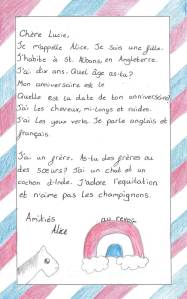 Chère Lucie,
Je m'appelle Alice. Je suis une fille.
J'habite à St. Albans, en Angleterre.
J'ai dix ans. Quel âge as-tu?
Mon anniversaire est le
Quelle est la date de ton anniversaire?
J'ai les cheveux, mi-longs et raides.
J'ai les yeux verts. Je parle anglais et
français.
J'ai un frère. As-tu des frères ou
des sœurs? J'ai un chat et un
cochon d'Inde. J'adore l'equitation
et n'aime pas les champignons.
Amitiés au revoir
Alice